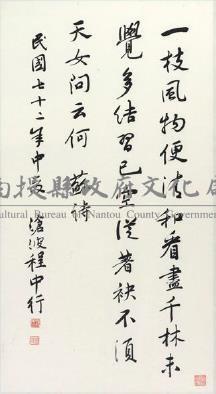 一枝風物便清和看盡千林未
覺多結習已空從著袂不須
天女問云何　蘇詩
民國七十二年中夏滄波程中行
南投縣政府文化局
Cultural Bureau of Nantou County Government